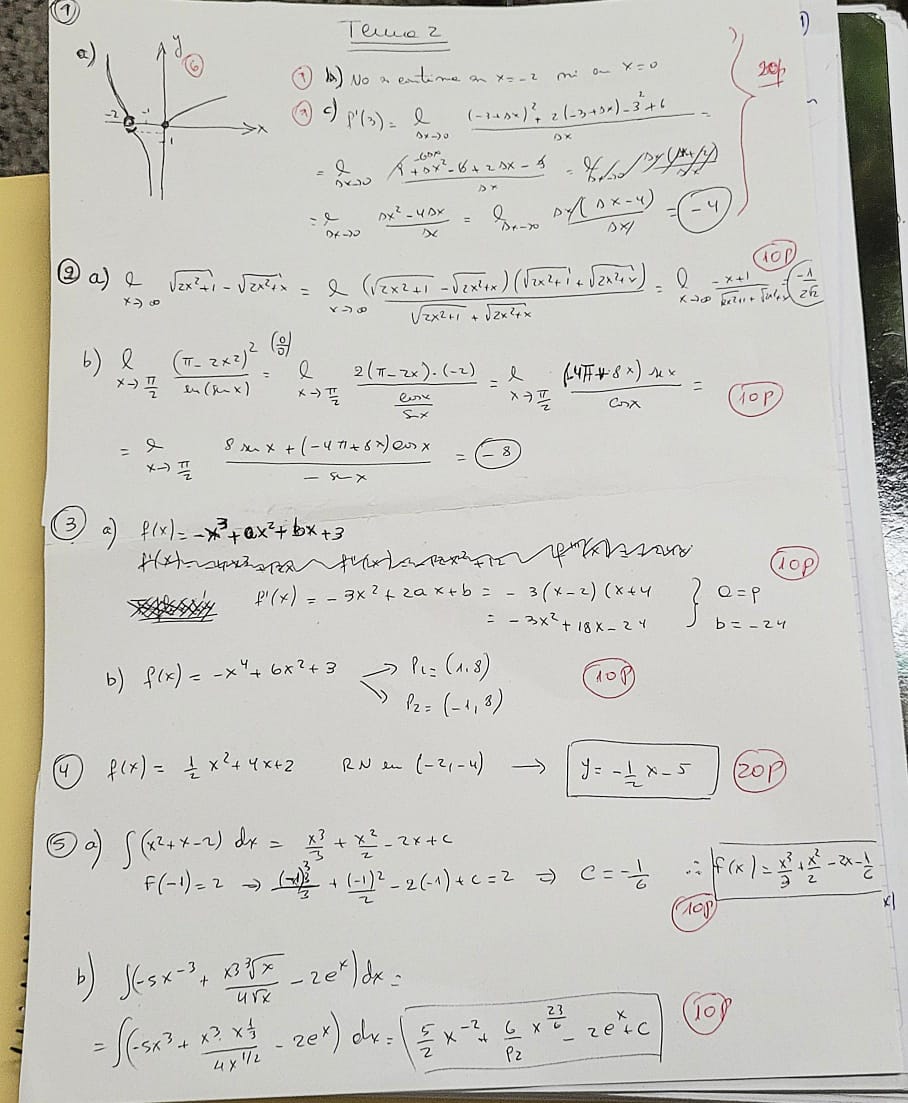 1
Tema 2
1)
a) y 6
-2 -1 x
1
1 b) No es continua en x=-2 ni en x=0
1 c) f'(3) = l Δx→0 (-3+Δx)²+2(-3+Δx)-3²+6 / Δx =
20p
= l Δx→0 -6Δx +Δx²-6+2Δx / Δx =
= l Δx→0 Δx²-4Δx / Δx = l Δx→0 Δx(Δx-4) / Δx = -4
2 a) l x→∞ √2x²+1 - √2x²+x = l x→∞ (√2x²+1 - √2x²+x)(√2x²+1 + √2x²+x) / √2x²+1 + √2x²+x = l x→∞ -x+1 / √2x²+1 + √2x²+x = -1 / 2√2
10p
b) l x→π/2 (π-2x)² / ln(sen x) (0/0) = l x→π/2 2(π-2x)·(-2) / cosx / senx = l x→π/2 (-4π+8x) senx / cosx =
10p
= l x→π/2 8 sen x + (-4π+8x)cosx / -senx = -8
3 a) f(x)=-x³+ax²+bx+3
10p
f'(x) = -3x²+2ax+b = -3(x-2)(x+4 } a=9
= -3x²+18x-24 b=-24
b) f(x) = -x⁴+6x²+3 → P1=(1,8)
→ P2=(-1,8)
10p
4 f(x) = 1/2 x²+4x+2 RN en (-2,-4) → y=-1/2 x-5
20p
5 a) ∫(x²+x-2) dx = x³/3 + x²/2 - 2x+c
F(-1)=2 → (-1)³/3 + (-1)²/2 - 2(-1)+c=2 ⇒ C=-1/6 ∴ f(x)= x³/3 + x²/2 - 2x - 1/6
10p
b) ∫(-5x⁻³ + x³ ∛x / 4√x - 2eˣ) dx =
= ∫(-5x³ + x³·x^1/3 / 4x^1/2 - 2eˣ) dx = 5/2 x⁻² + 6/92 x^23/6 - 2eˣ+C
10p